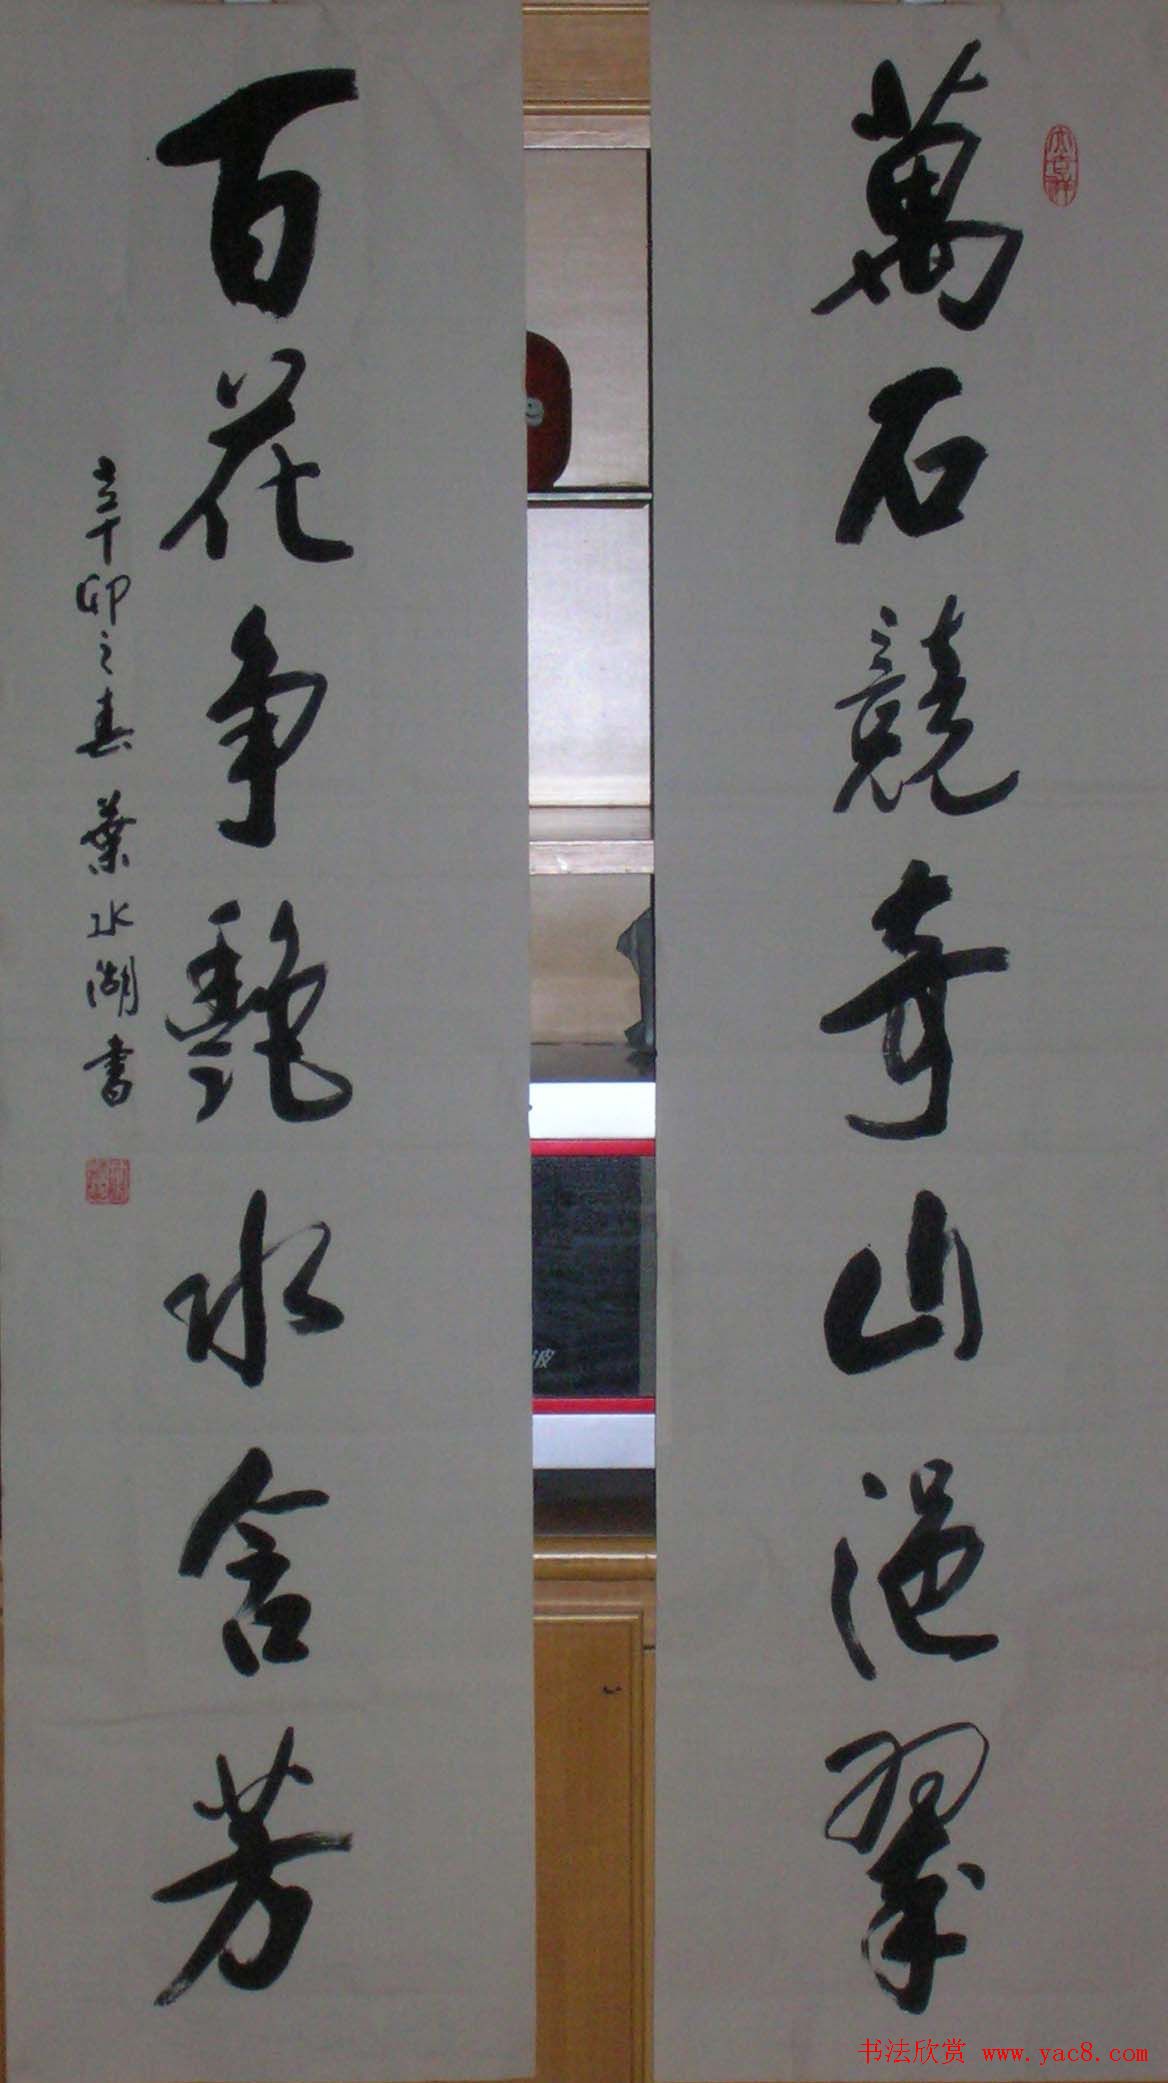 萬石競奇山浥翠
百花争艷水含芳
辛卯之春葉水湖書
书法欣赏 www.yac8.com